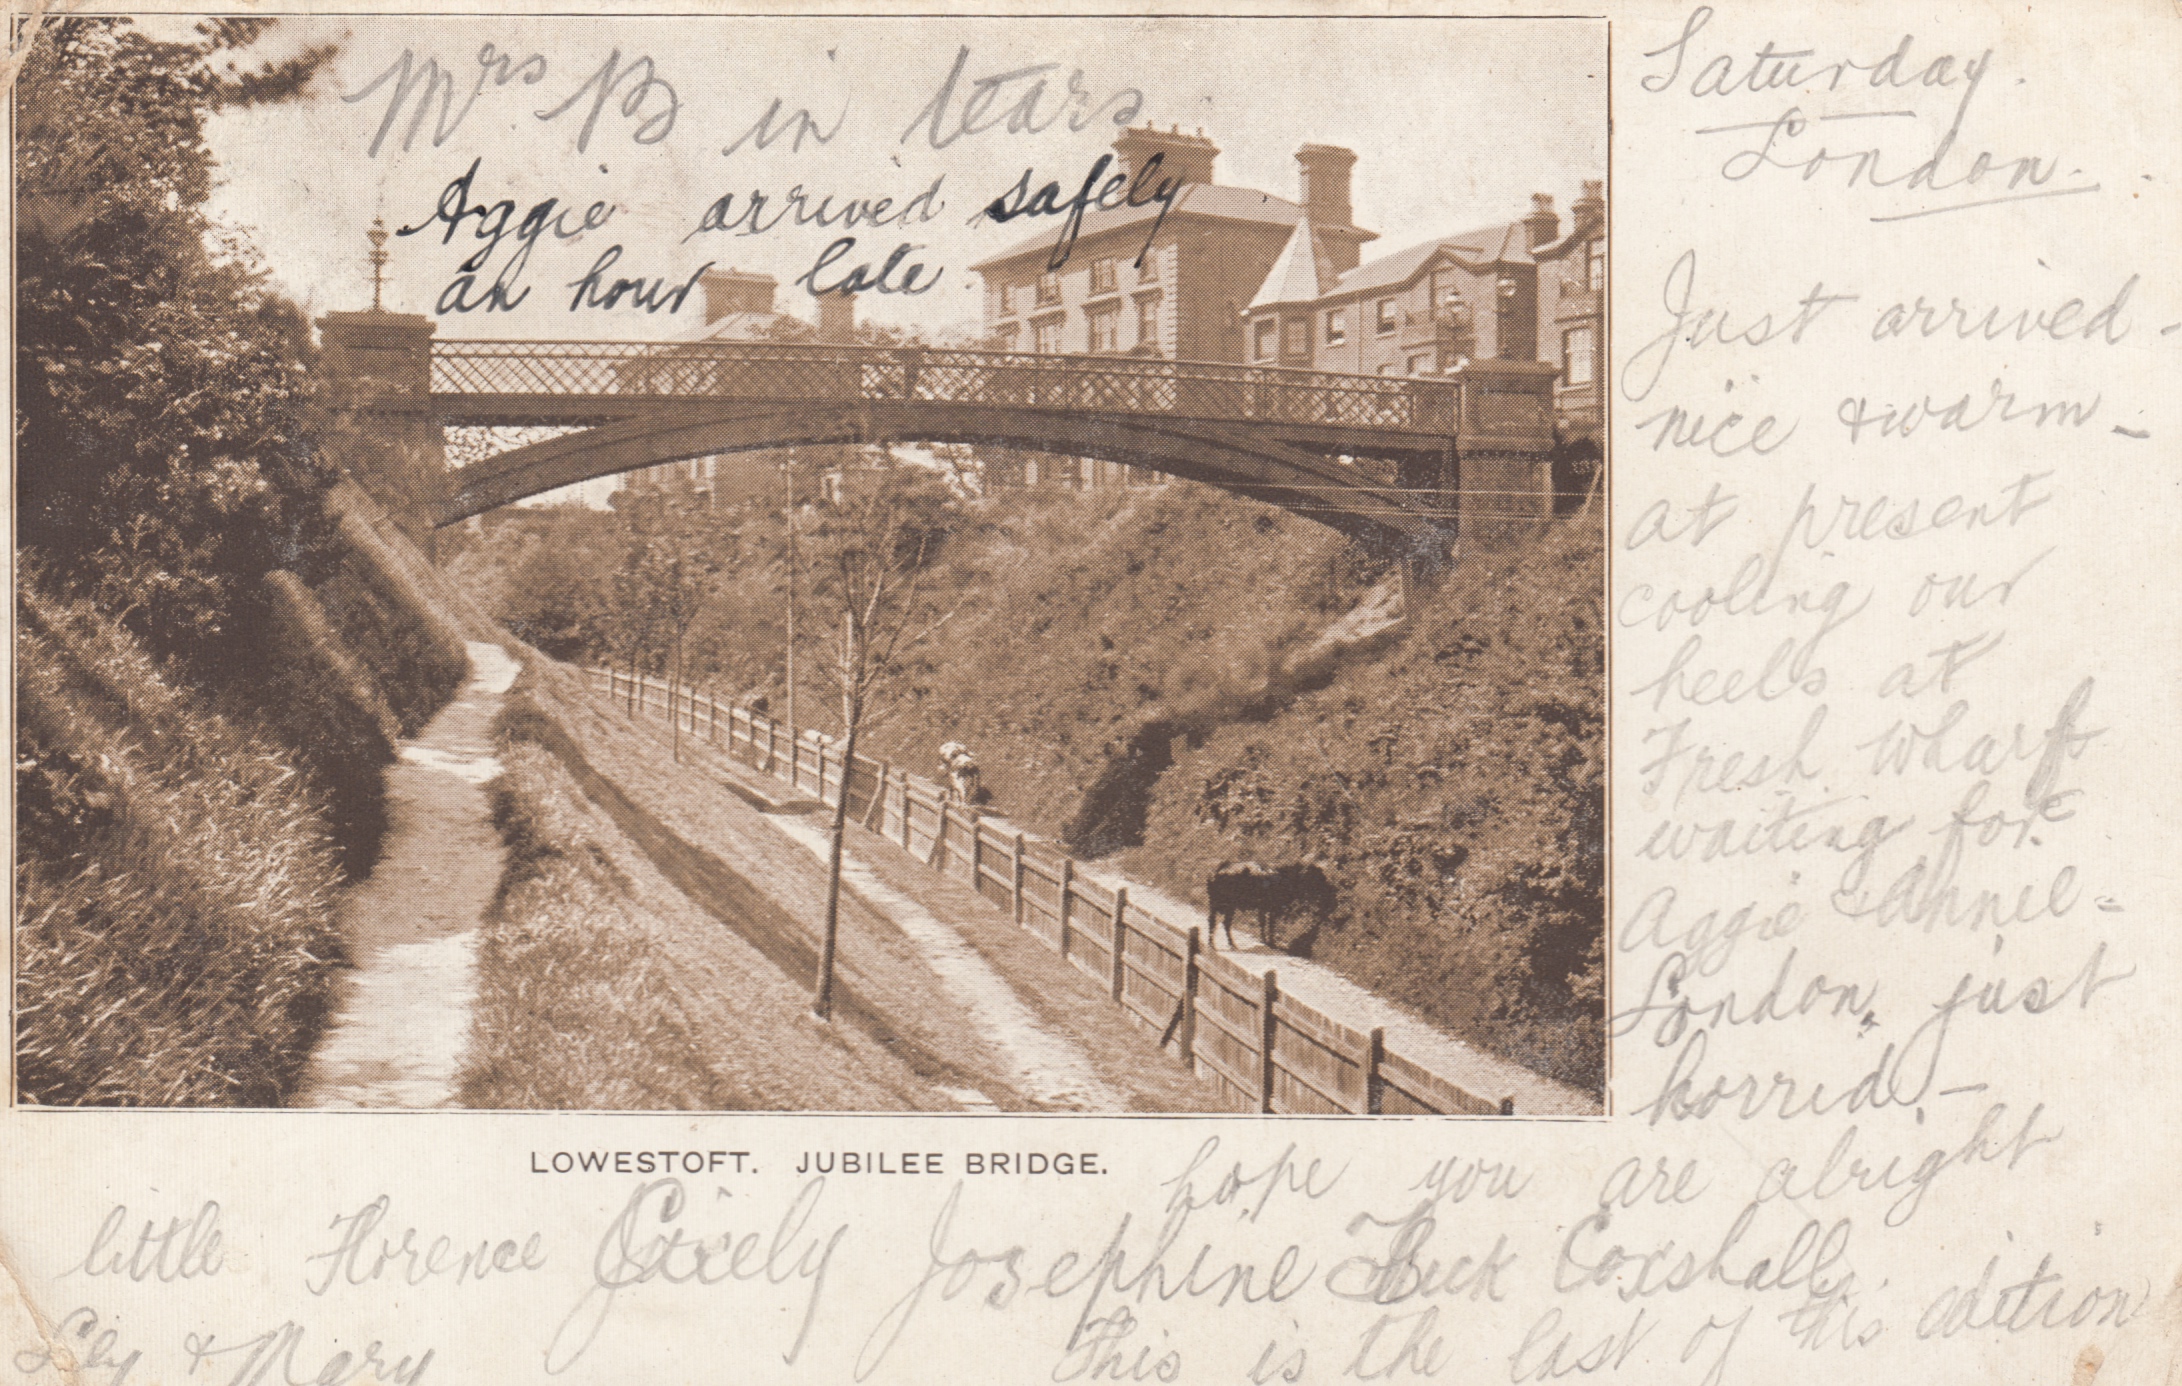 Mrs B in tears
Aggie arrived safely
an hour late
Saturday.
London.
Just arrived -
nice & warm -
at present
cooling our
heels at
Fresh Wharf
waiting for
Aggie & Annie -
London, just
horrid, -
hope you are alright
LOWESTOFT. JUBILEE BRIDGE.
little Florence Cicely Josephine Coxshall.
Lily & Mary
This is the last of this edition